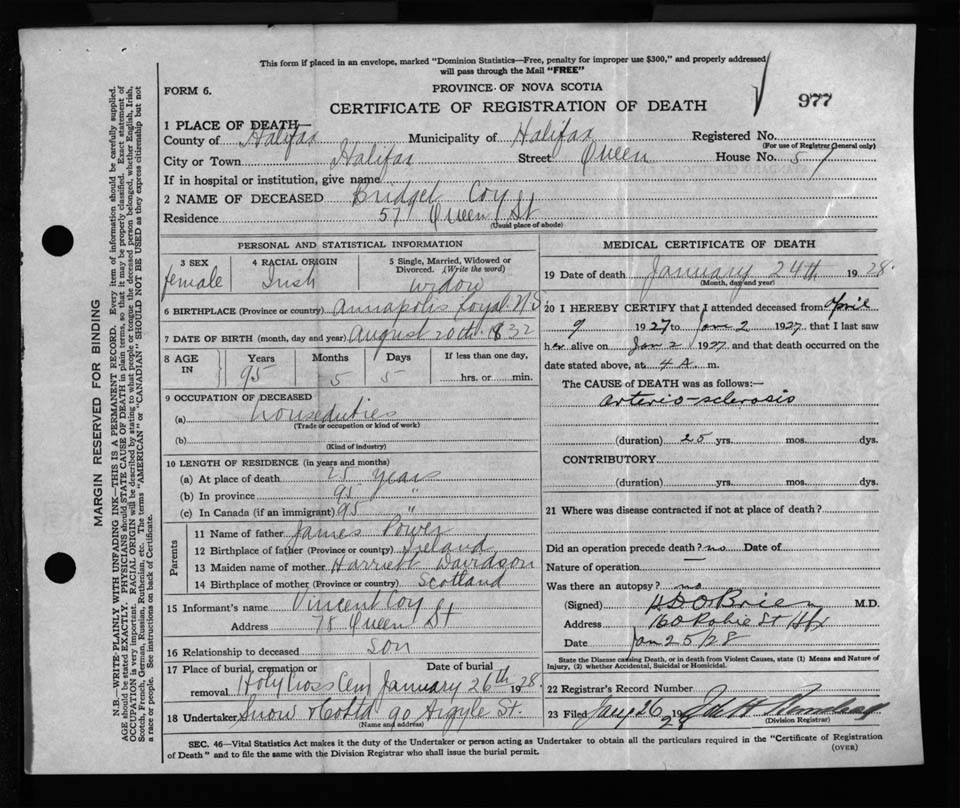 This form if placed in an envelope, marked "Dominion Statistics—Free, penalty for improper use $300," and properly addressed
will pass through the Mail "FREE"
FORM 6.
PROVINCE OF NOVA SCOTIA
CERTIFICATE OF REGISTRATION OF DEATH
977
1 PLACE OF DEATH—
County of Halifax Municipality of Halifax Registered No.
(For use of Registrar General only)
City or Town Halifax Street Queen House No. 57
If in hospital or institution, give name
2 NAME OF DECEASED Bridget Coy
Residence 57 Queen St
(Usual place of abode)
PERSONAL AND STATISTICAL INFORMATION
3 SEX 4 RACIAL ORIGIN 5 Single, Married, Widowed or Divorced. (Write the word)
female Irish widow
6 BIRTHPLACE (Province or country) Annapolis Royal N S
7 DATE OF BIRTH (month, day and year) August 20th 1832
8 AGE IN Years Months Days If less than one day,
95 5 5 hrs. or min.
9 OCCUPATION OF DECEASED
(a) house duties
(Trade or occupation or kind of work)
(b)
(Kind of industry)
10 LENGTH OF RESIDENCE (in years and months)
(a) At place of death 25 years
(b) In province 95 "
(c) In Canada (if an immigrant) 95 "
Parents
11 Name of father James Power
12 Birthplace of father (Province or country) Ireland
13 Maiden name of mother Harriett Davidson
14 Birthplace of mother (Province or country) Scotland
15 Informant's name Vincent Coy
Address 78 Queen St
16 Relationship to deceased son
17 Place of burial, cremation or removal Holy Cross Cem Date of burial January 26th 1928
18 Undertaker Snow & Co Ltd 90 Argyle St.
(Name and address)
MEDICAL CERTIFICATE OF DEATH
19 Date of death January 24th 1928.
(Month, day and year)
20 I HEREBY CERTIFY that I attended deceased from April
9 1927 to Jan 2 1927, that I last saw
her alive on Jan 2 1927 and that death occurred on
date stated above, at 4 A. m.
The CAUSE of DEATH was as follows:—
arterio-sclerosis
(duration) 25 yrs. mos. dys.
CONTRIBUTORY.
(duration) yrs. mos. dys.
21 Where was disease contracted if not at place of death?
Did an operation precede death? no Date of
Nature of operation
Was there an autopsy? no
(Signed) O'Brien M.D.
Address 160 Robie St Hfx
Date Jan 25/28
State the Disease causing Death, or in death from Violent Causes, state (1) Means and Nature of
Injury, (2) whether Accidental, Suicidal or Homicidal.
22 Registrar's Record Number
23 Filed Jany 26 1928
(Division Registrar)
SEC. 46—Vital Statistics Act makes it the duty of the Undertaker or person acting as Undertaker to obtain all the particulars required in the "Certificate of Registration
of Death" and to file the same with the Division Registrar who shall issue the burial permit.
(OVER)
MARGIN RESERVED FOR BINDING
N.B.—WRITE PLAINLY WITH UNFADING INK—THIS IS A PERMANENT RECORD. Every item of information should be carefully supplied.
AGE should be stated EXACTLY. PHYSICIANS should STATE CAUSE OF DEATH in plain terms, so that it may be properly classified. Exact statement of
OCCUPATION is very important. RACIAL ORIGIN will be described by stating to what people or tongue the deceased person belonged, whether English, Irish,
Scotch, French, German, Russian, Ruthenian, etc. The terms "AMERICAN" or "CANADIAN" SHOULD NOT BE USED as they express citizenship but not
a race or people. See instructions on back of Certificate.